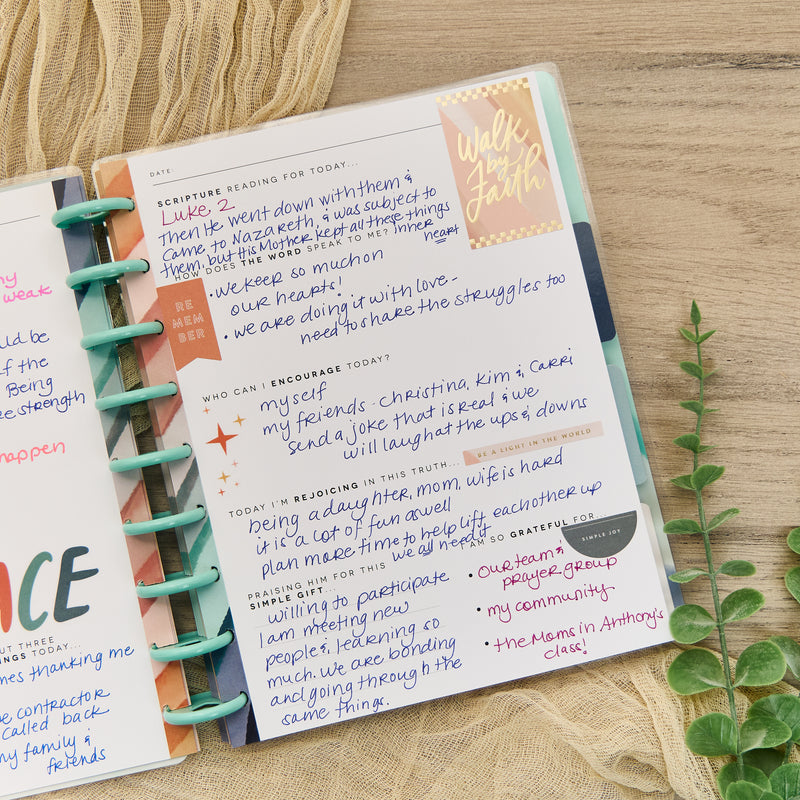 my
weak
uld be
f the
Being
e strength
happen
ACE
UT THREE
NGS TODAY...
mes thanking me
e contractor
called back
my family &
friends
DATE:
Walk
by
Faith
SCRIPTURE READING FOR TODAY...
Luke, 2
Then He went down with them &
came to Nazareth, & was subject to
them, but His Mother kept all these things
inner
heart
HOW DOES THE WORD SPEAK TO ME?
• we keep so much on
our hearts!
• we are doing it with love -
need to share the struggles too
RE
MEM
BER
WHO CAN I ENCOURAGE TODAY?
myself
my friends - Christina, Kim & Carri
send a joke that is real & we
will laugh at the ups & downs
BE A LIGHT IN THE WORLD
TODAY I'M REJOICING IN THIS TRUTH...
being a daughter, mom, wife is hard
it is a lot of fun as well
plan more time to help lift each other up
we all need it
PRAISING HIM FOR THIS
SIMPLE GIFT...
willing to participate
I am meeting new
people & learning so
much. We are bonding
and going through the
same things.
I AM SO GRATEFUL FOR...
SIMPLE JOY
• Our team &
prayer group
• my community
• the Moms in Anthony's
class!